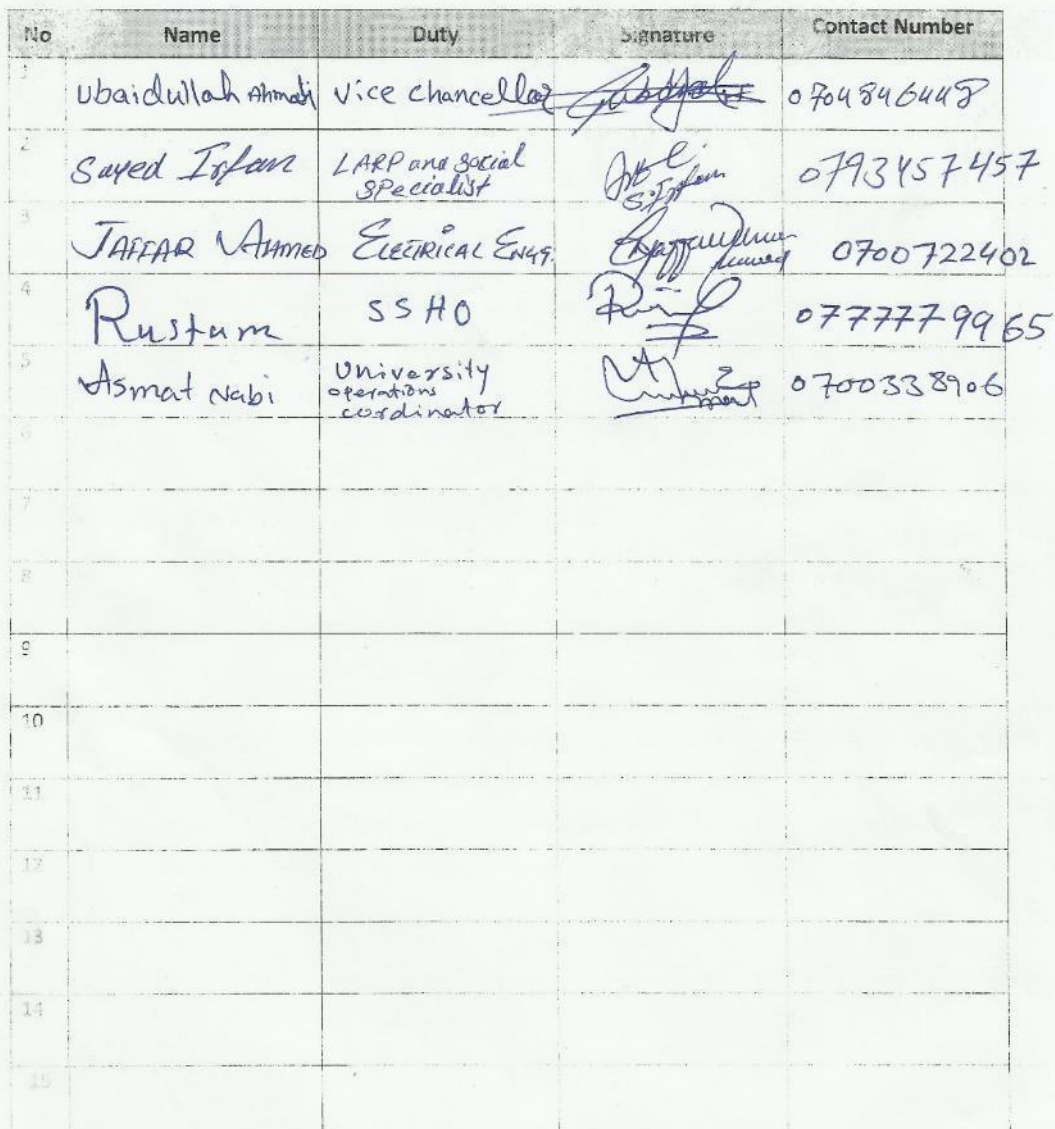 No Name Duty Signature Contact Number
1 Ubaidullah Ahmadi Vice Chancellor 0704846448
2 Sayed Irfan LARP and social
SPecialist S.Irfan 0793457457
3 JAFFAR AHMED ELECTRICAL ENGG. 0700722402
4 Rustum SSHO 0777779965
5 Asmat Nabi University
operations
cordinator 0700338906
6
7
8
9
10
11
12
13
14
15